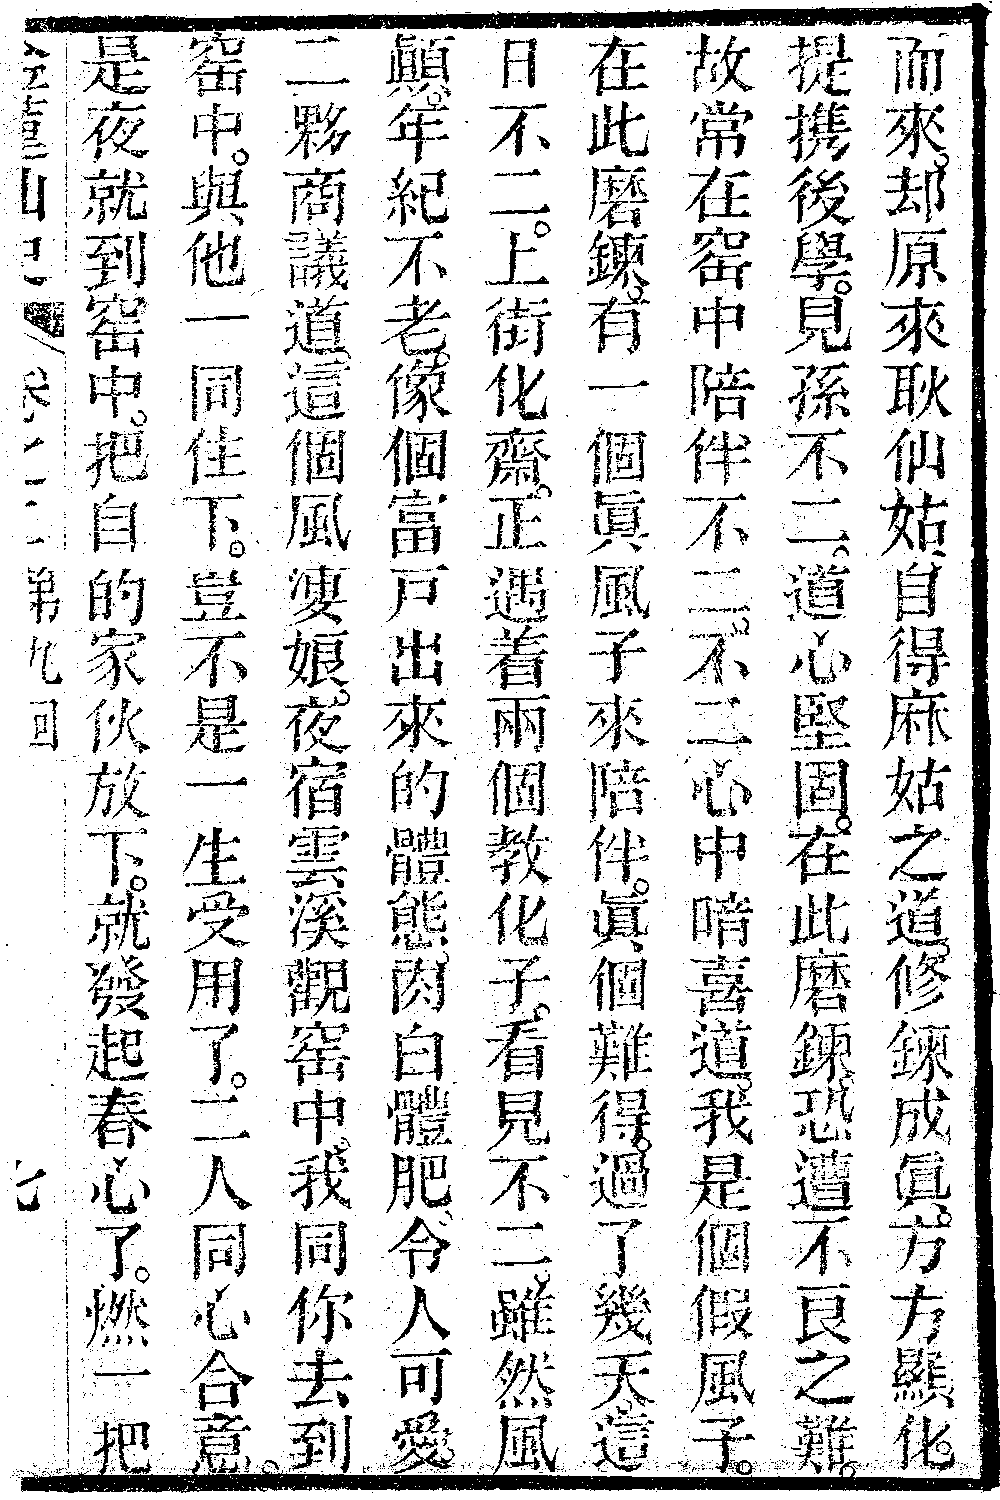 而來。却原來耿仙姑、自得麻姑之道。修鍊成眞。方方顯化。
提携後學。見孫不二。道心堅固。在此磨鍊。恐遭不良之難。
故常在窑中陪伴不二。不二心中喑喜道。我是個假風子。
在此磨鍊。有一個眞風子來陪伴。眞個難得。過了幾天。這
日不二。上街化齋。正遇着兩個教化子。看見不二。雖然風
顚。年紀不老。像個富戸出來的體態。肉白體肥。令人可愛。
二夥商議道。這個風凄娘。夜宿雲溪觀窑中。我同你去到
窑中。與他一同住下。豈不是一生受用了。二人同心合意。
是夜就到窑中。把自的家伙放下。就發起春心了。燃一把
山記 卷之二 第九回 七